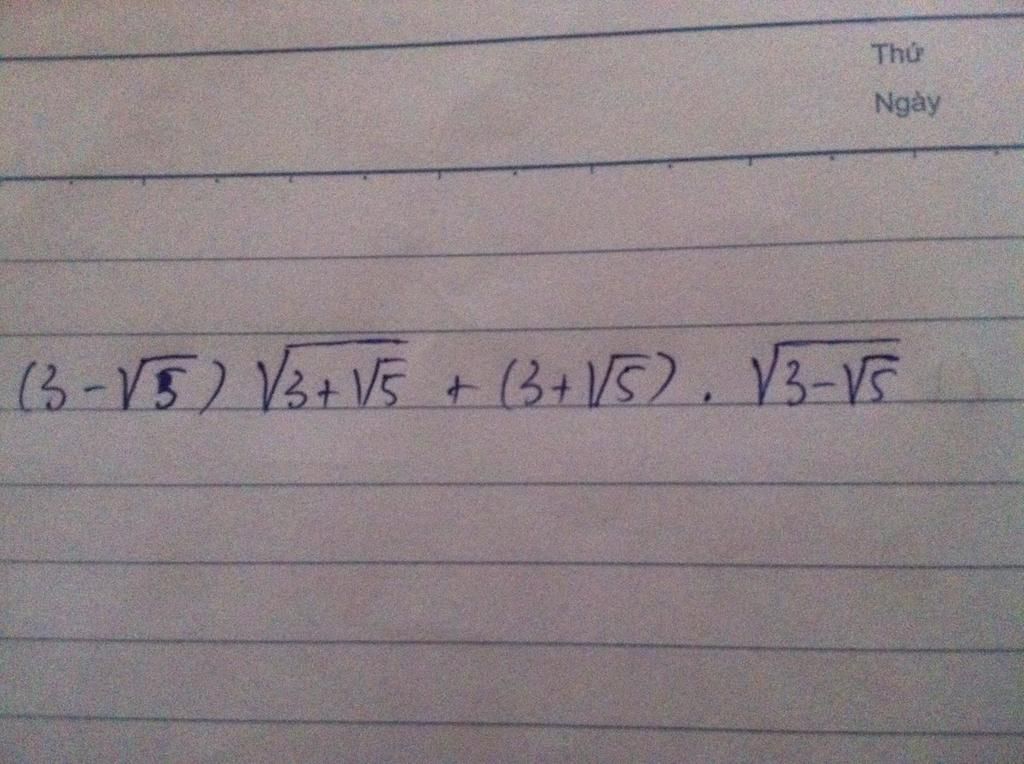 Thứ
Ngày
(3-√5) √(3+√5) + (3+√5) . √(3-√5)